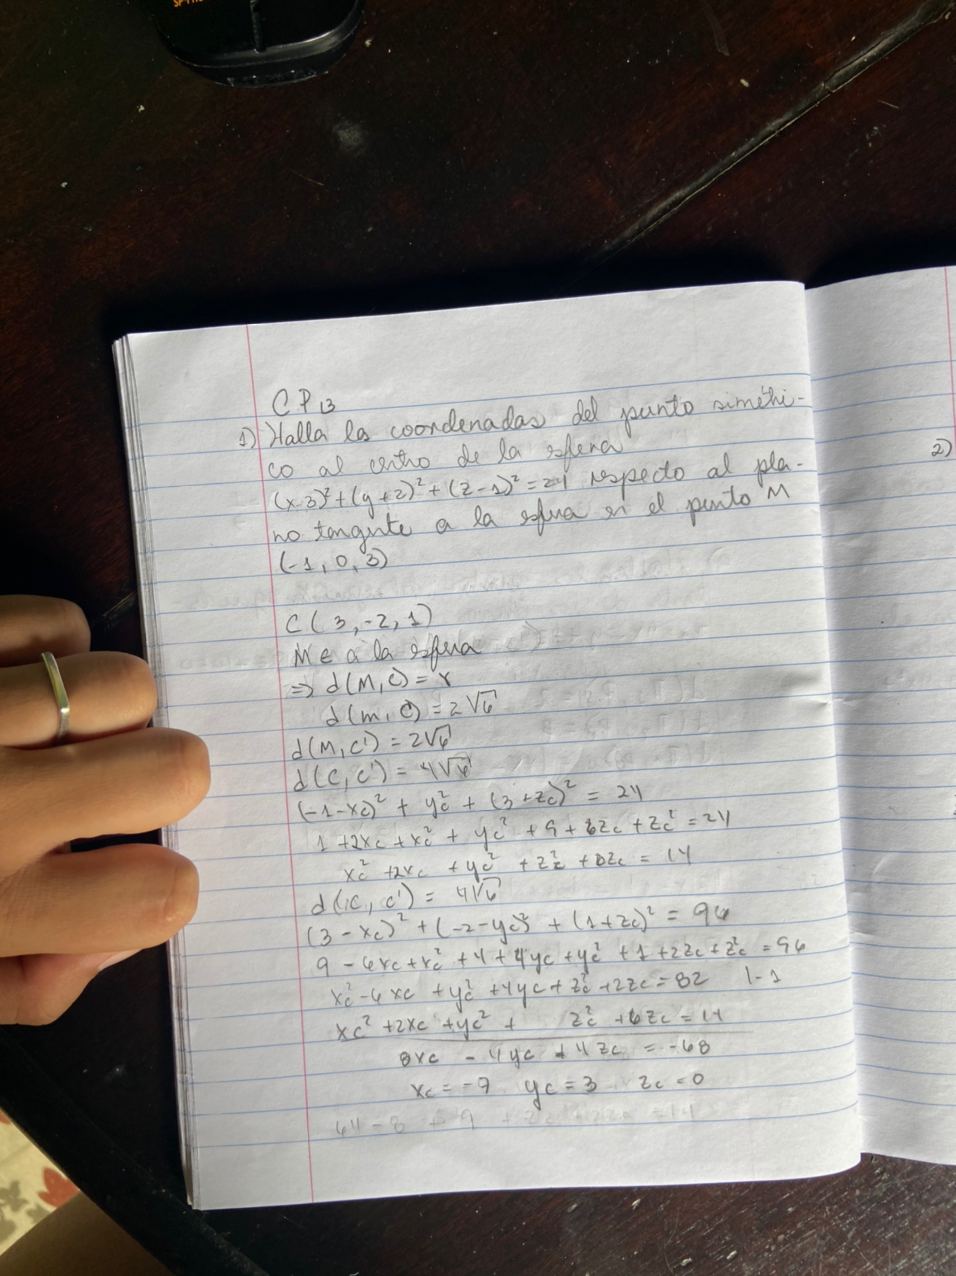 CP13
1) Halla las coordenadas del punto simétri-
co al centro de la esfera
(x-3)²+(y+2)²+(z-1)²=24 respecto al pla-
no tangente a la esfera en el punto M
(-1,0,3)
C(3,-2,1)
M ∈ a la esfera
=> d(M,C)=r
d(m,C)=2√6
d(M,C')=2√6
d(C,C')=4√6
(-1-xc)² + yc² + (3+zc)² = 24
1+2xc+xc² + yc² + 9 + 6zc + zc² = 24
xc² +2xc + yc² + zc² + 6zc = 14
d(C,C') = 4√6
(3-xc)² + (-2-yc)² + (1+zc)² = 96
9-6xc+xc²+4+4yc+yc²+1+2zc+zc²=96
xc²-6xc+yc²+4yc+zc²+2zc=82 |-1
xc²+2xc+yc²+ zc²+6zc=14
8xc - 4yc + 4zc = -68
xc=-7 yc=3 zc=0
2)